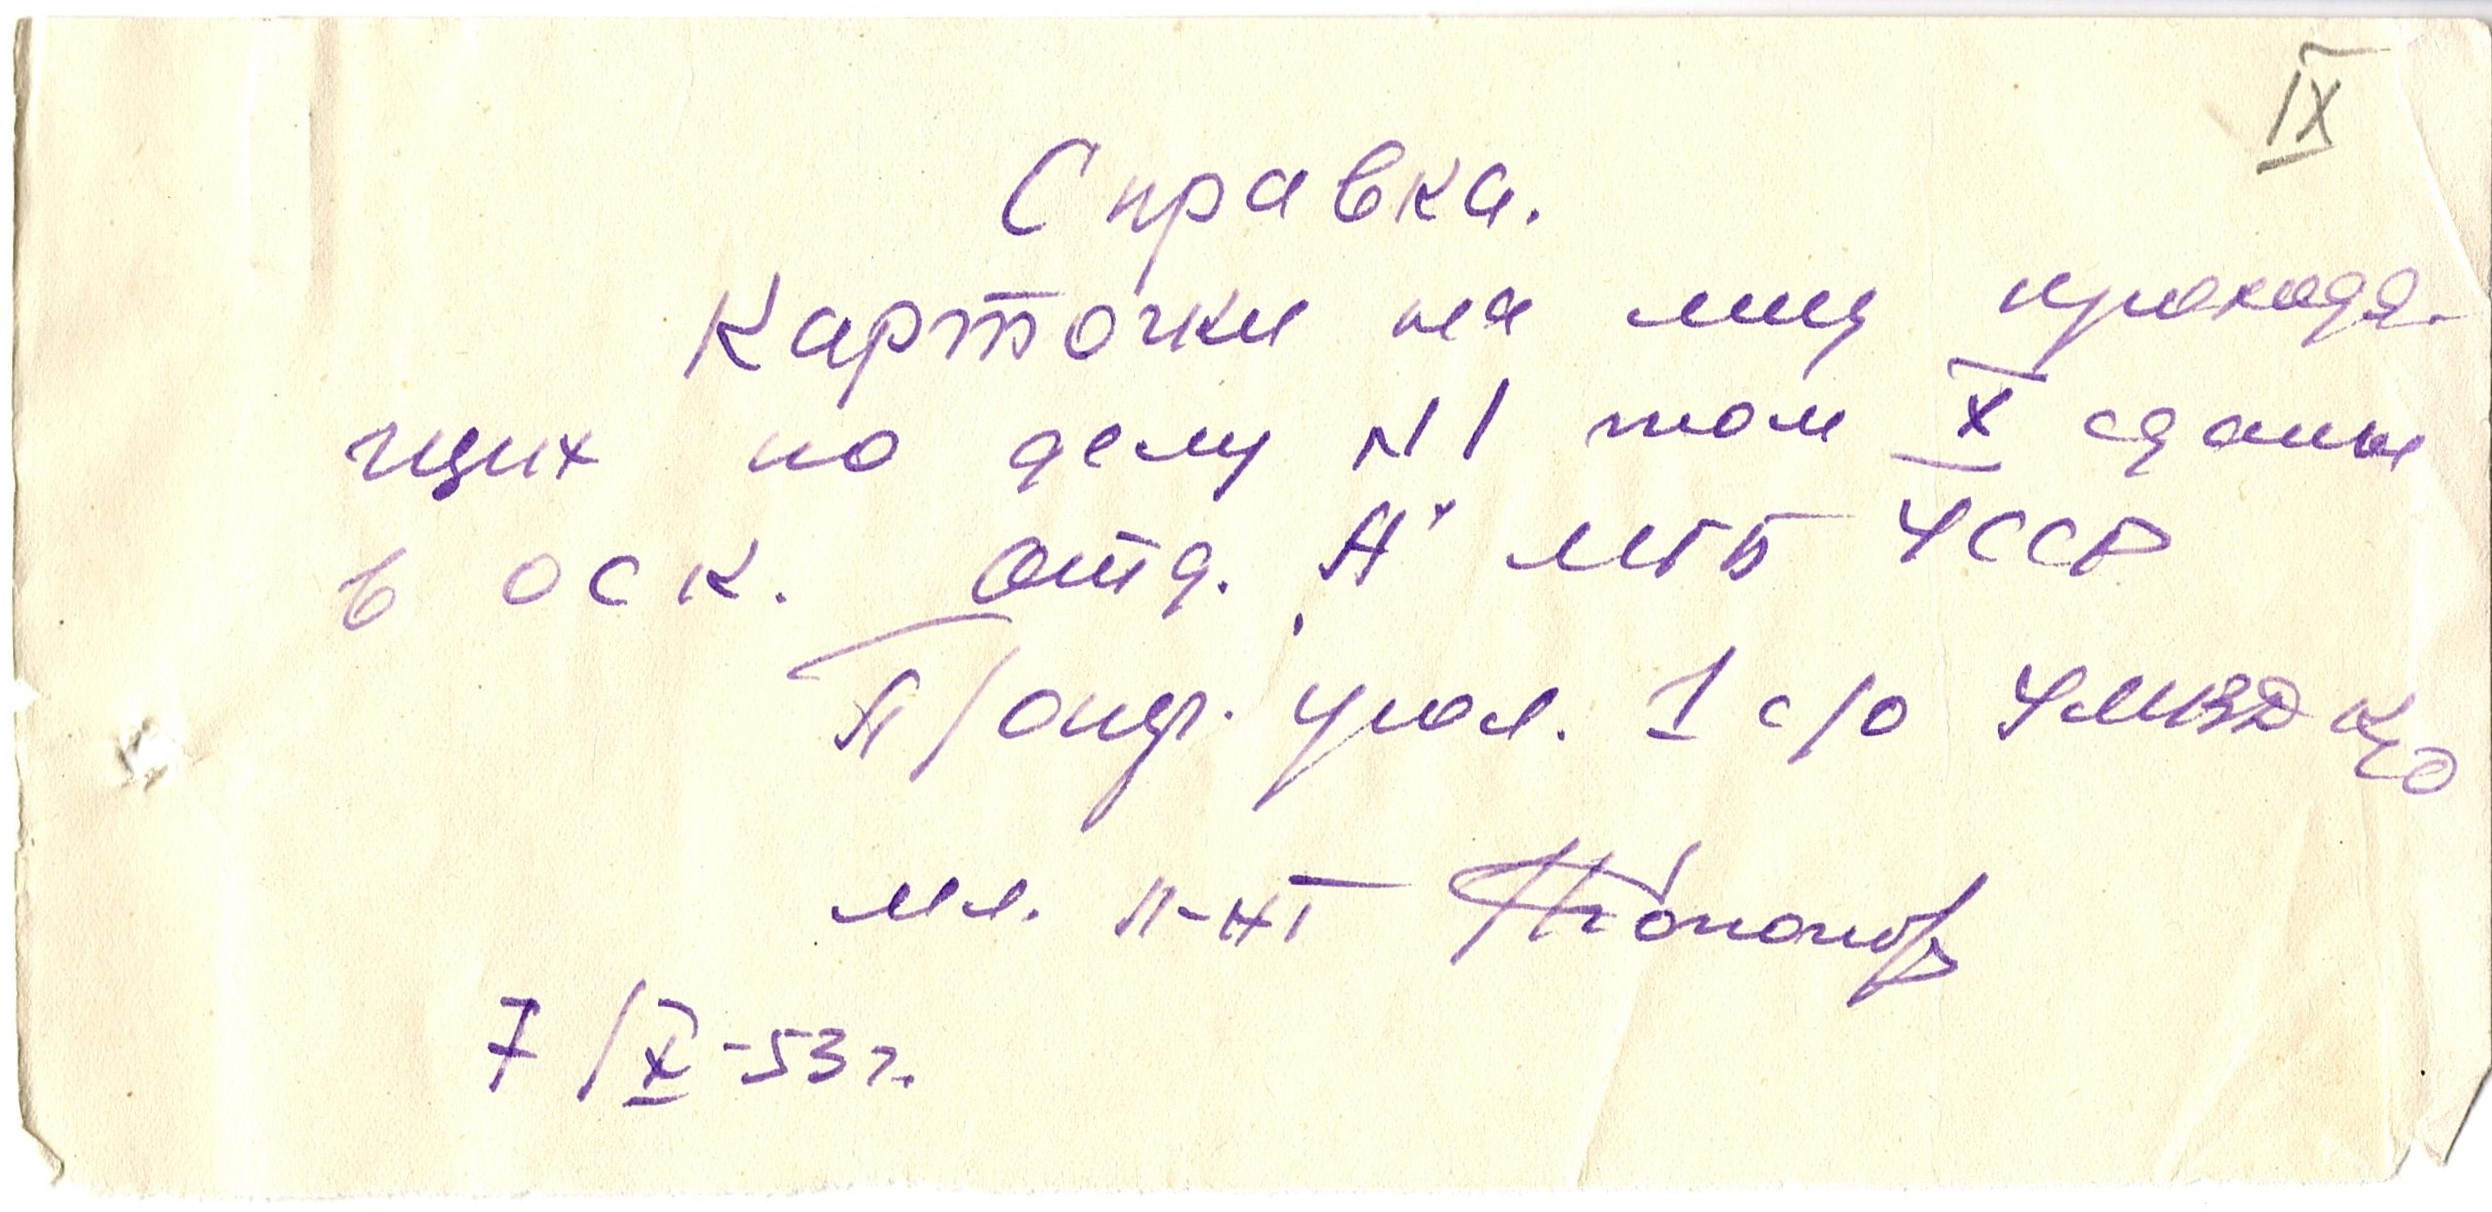 IX
Справка.
Карточки на лиц проходя-
щих по делу N1 том X сданы
в ОСК. Отд. "А" МГБ УССР
П/опер. упол. 1 с/о УМВД КО
мл. л-нт
7/X-53г.